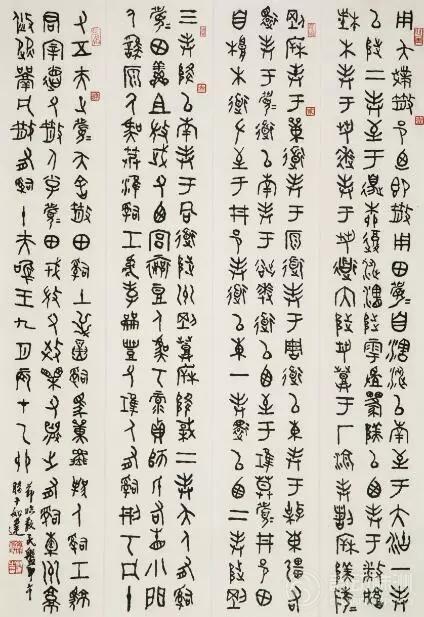 用夨撲散邑迺即散用田眉自瀗涉以南至于大沽一封
以陟二封至于邊柳復涉瀗陟雩陕以西封于播城
楮木封于芻逨封于芻道內陟芻登于厂湶封割柝陕陵
剛柝封于道封于原道封于周道以東封于東疆右
還封于眉道以南封于逨道以西至于莫眉邢邑田
自根木道左至于邢邑封道以東一封還以西一封陟剛
三封降以南封于同道陟州剛登柝降棫二封夨人有嗣
眉田鮮且微武父西宮襄豆人虞丂彔貞師氏右眚小門
人繇原人虞艿淮嗣工虎孝開豐父人有嗣刑丂凡
十有五夫正眉夨舍散田嗣土逆寅嗣馬單堒邦人嗣工駷
君宰德父散人小子眉田戎微父效父襄之有嗣橐州
攸从凡散有嗣十夫唯王九月辰在乙卯
節臨散氏盤甲午